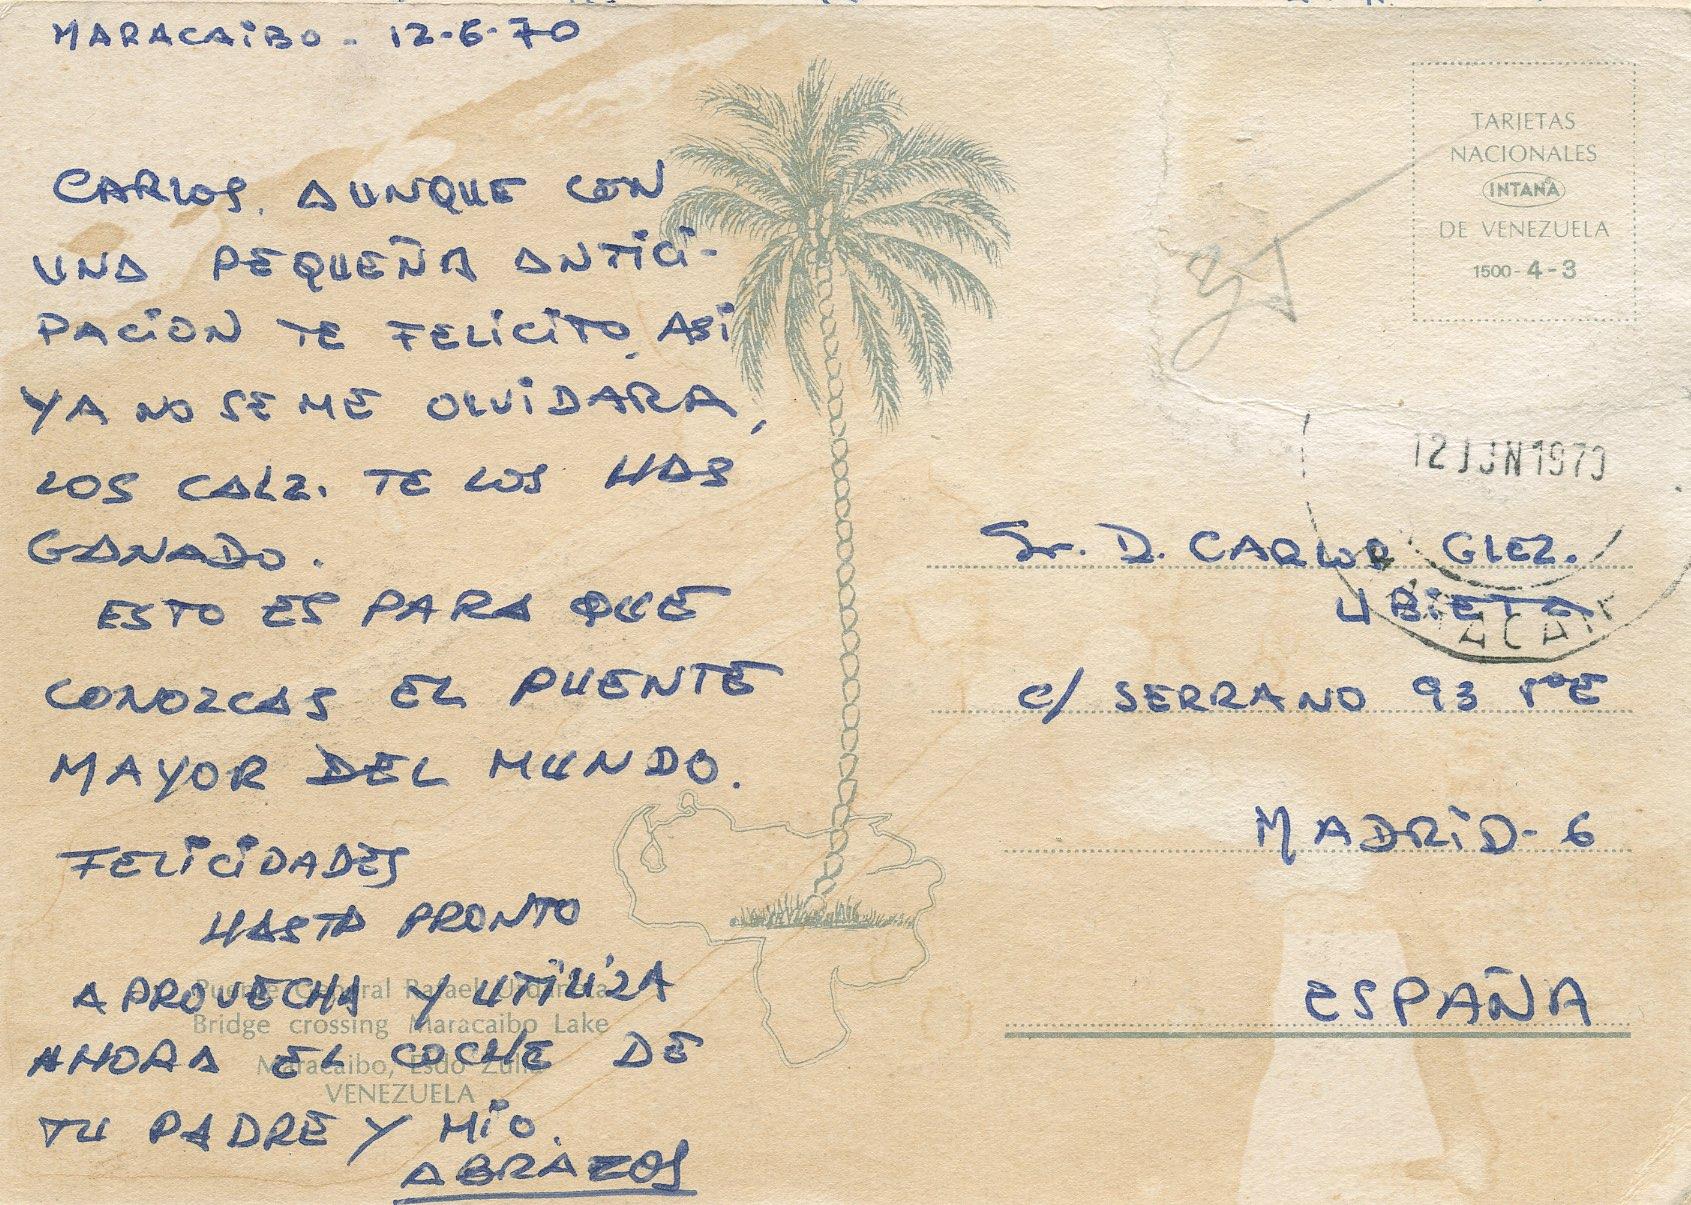 MARACAIBO - 12-6-70
CARLOS, AUNQUE CON
UNA PEQUEÑA ANTICI-
PACION TE FELICITO, ASI
YA NO SE ME OLVIDARA,
LOS CALZ. TE LOS HAS
GANADO.
ESTO ES PARA QUE
CONOZCAS EL PUENTE
MAYOR DEL MUNDO.
FELICIDADES
HASTA PRONTO
APROVECHA Y UTILIZA
AHORA EL COCHE DE
TU PADRE Y MIO.
ABRAZOS
Puente General Rafael Urdaneta
Bridge crossing Maracaibo Lake
Maracaibo, Esdo Zulia
VENEZUELA
TARJETAS
NACIONALES
INTANA
DE VENEZUELA
1500-4-3
12 JUN 1970
Sr. D. CARLOS GLEZ.
UBIETA
C/ SERRANO 93
MADRID-6
ESPAÑA